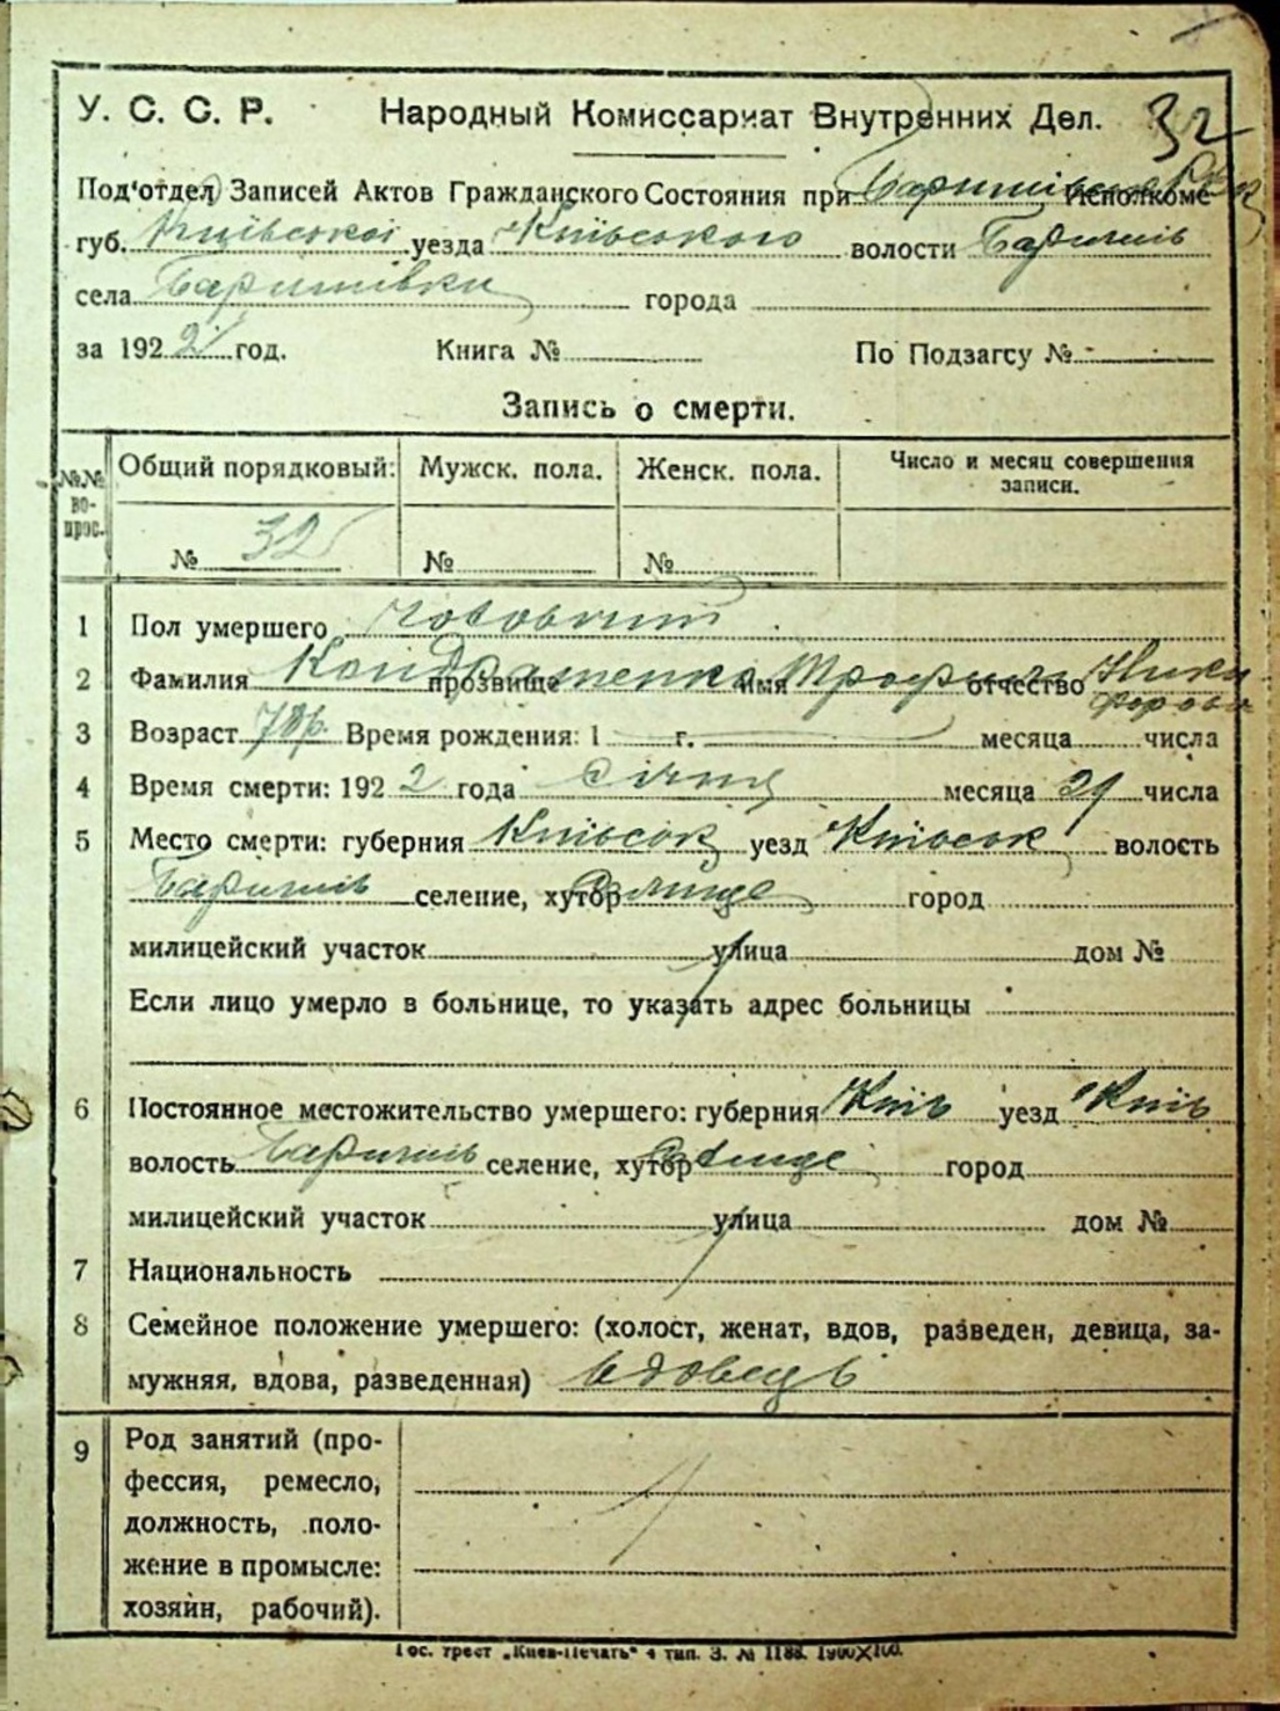 32
У. С. С. Р. Народный Комиссариат Внутренних Дел.
Под'отдел Записей Актов Гражданского Состояния при Исполкоме
губ. Київської уезда Київського волости Баришів
села Баришівки города
за 1922 год. Книга № По Подзагсу №
Запись о смерти.
№№ вопрос. Общий порядковый: Мужск. пола. Женск. пола. Число и месяц совершения записи.
№ 32 № №
1 Пол умершего чоловічий
2 Фамилия прозвище Кондратенко имя Трофим отчество Никифорович
3 Возраст 78р. Время рождения: 1 г. месяца числа
4 Время смерти: 1922 года січня месяца 29 числа
5 Место смерти: губерния Київськ уезд Київськ волость
Баришів селение, хутор город
милицейский участок улица дом №
Если лицо умерло в больнице, то указать адрес больницы
6 Постоянное местожительство умершего: губерния Київ уезд Київ
волость Баришів селение, хутор город
милицейский участок улица дом №
7 Национальность
8 Семейное положение умершего: (холост, женат, вдов, разведен, девица, за-
мужняя, вдова, разведенная) вдовець
9 Род занятий (про-
фессия, ремесло,
должность, поло-
жение в промысле:
хозяин, рабочий).
Гос. трест „Киев-Печать“ 4 тип. З. № 1188. 1900X100.